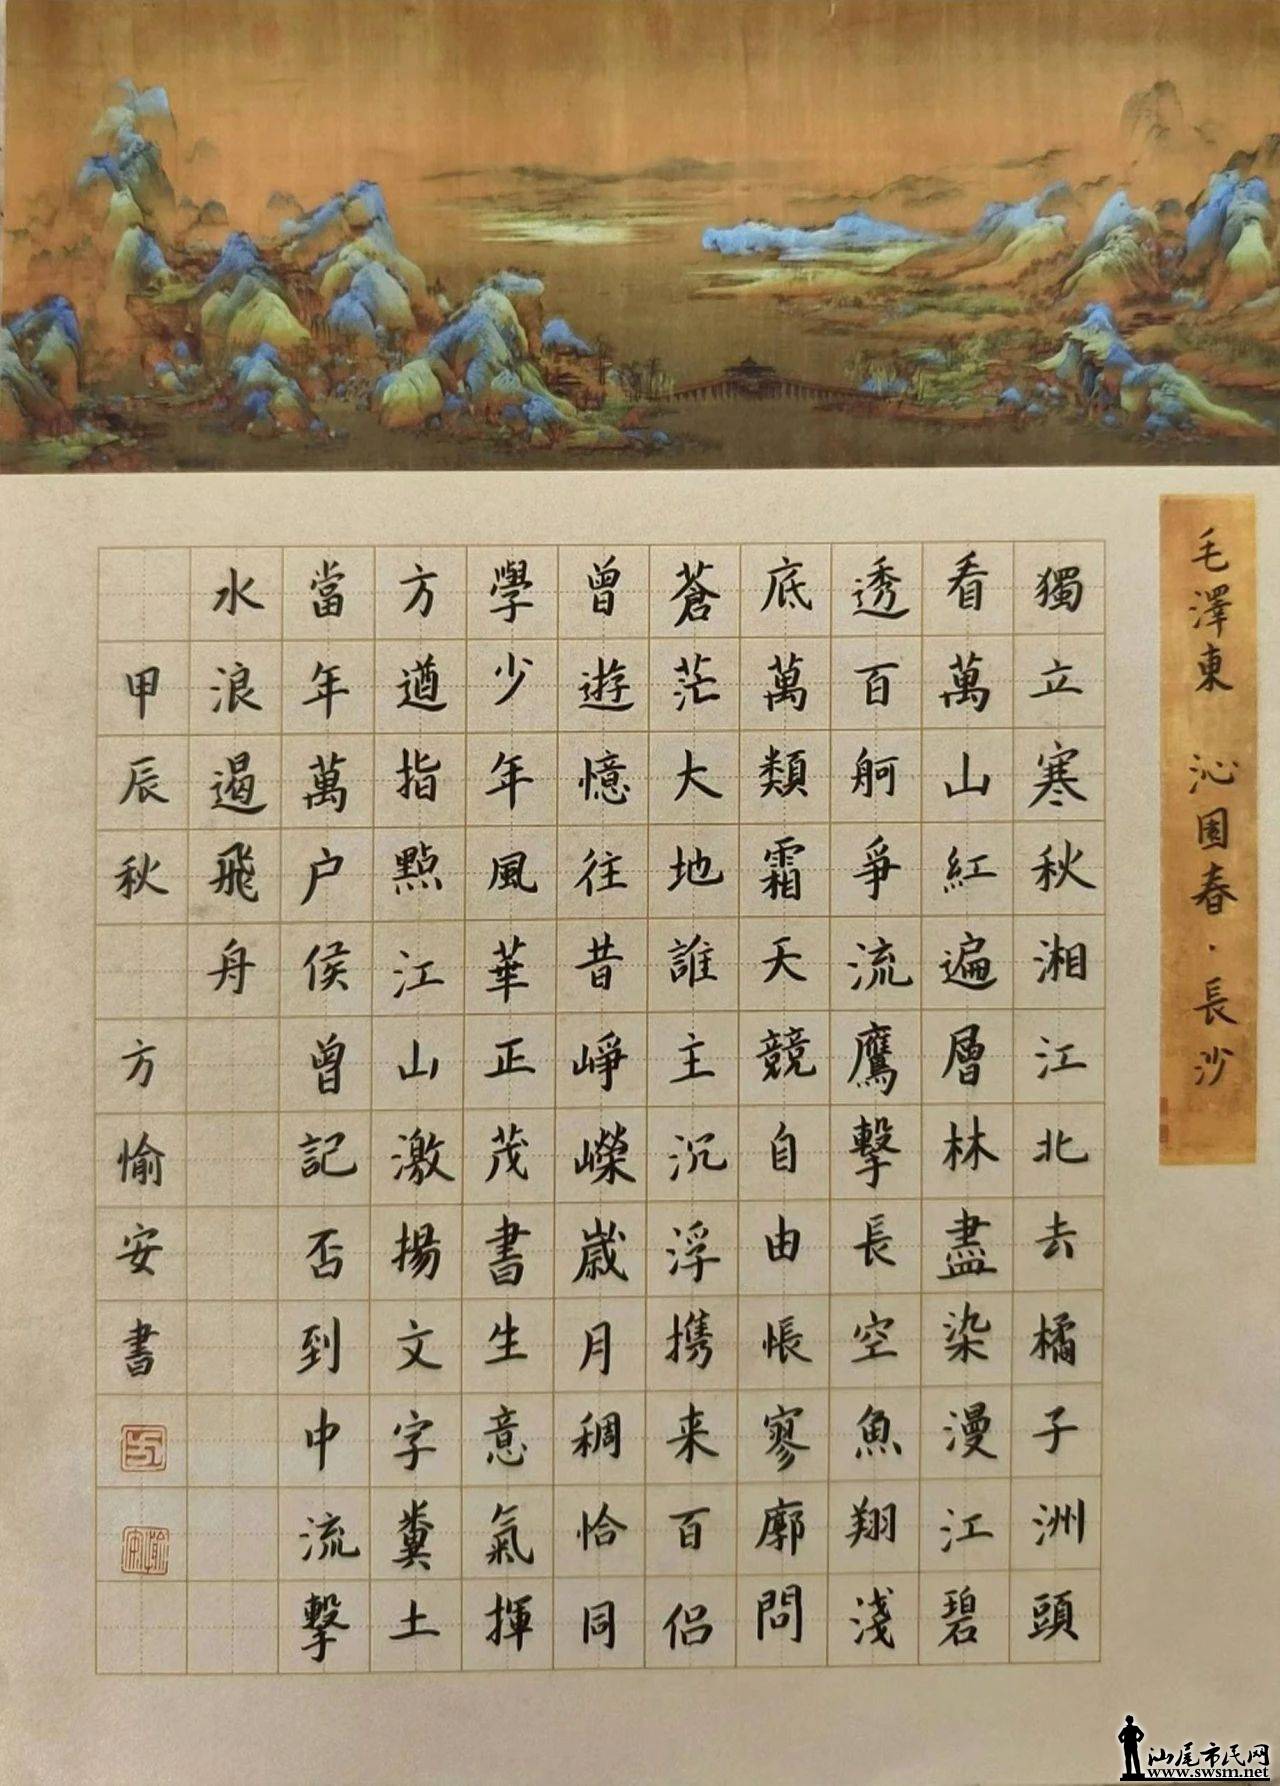 毛澤東 沁園春·長沙
獨立寒秋湘江北去橘子洲頭
看萬山紅遍層林盡染漫江碧
透百舸爭流鷹擊長空魚翔淺
底萬類霜天競自由悵寥廓問
蒼茫大地誰主沉浮携来百侣
曾遊憶往昔崢嶸歲月稠恰同
學少年風華正茂書生意氣揮
方遒指點江山激揚文字糞土
當年萬户侯曾記否到中流擊
水浪遏飛舟
甲辰秋 方愉安書
汕尾市民网
www.swsm.net